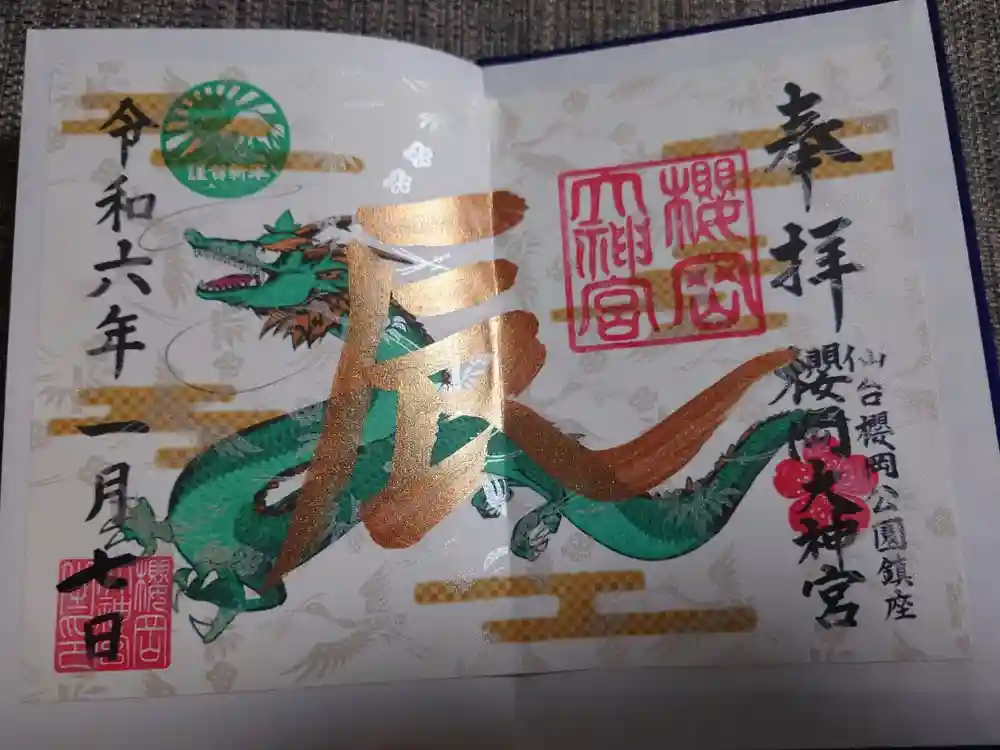 奉拝
仙台櫻岡公園鎮座
櫻岡大神宮
櫻岡
大神宮
辰
謹賀新年
令和六年一月七日